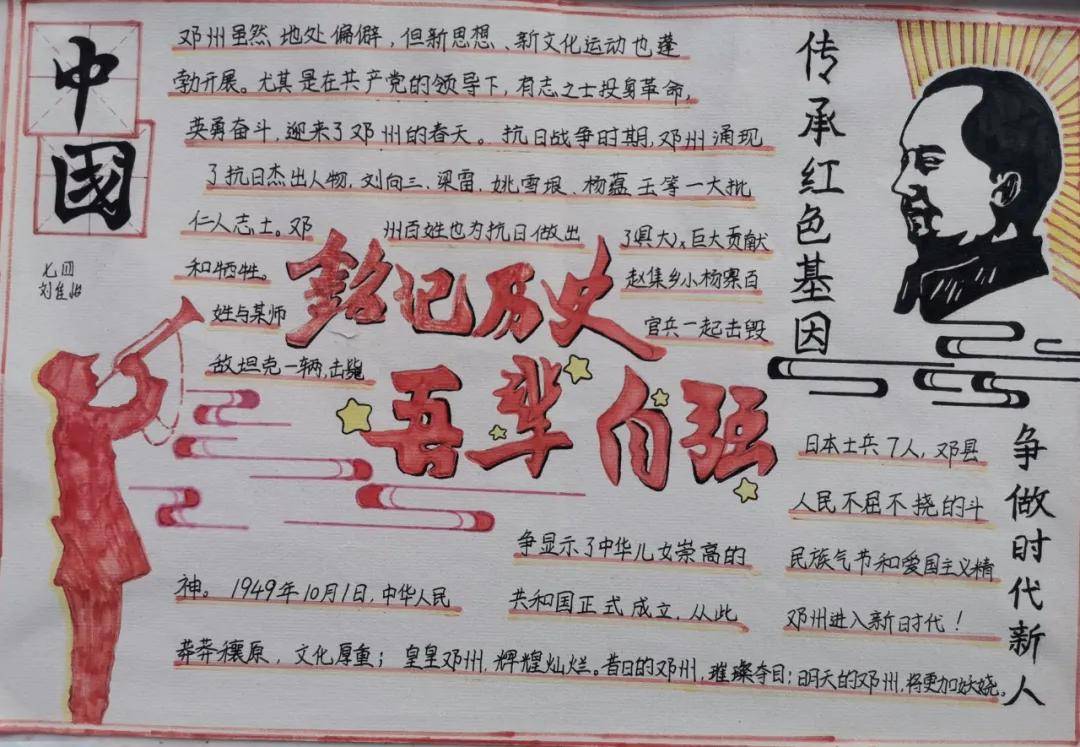 中
國
七四
刘佳怡
邓州虽然地处偏僻，但新思想、新文化运动也蓬
勃开展。尤其是在共产党的领导下，有志之士投身革命，
英勇奋斗，迎来了邓州的春天。抗日战争时期，邓州涌现
了抗日杰出人物，刘向三、梁雷、姚雪垠、杨蕴玉等一大批
仁人志士。邓州百姓也为抗日做出了巨大贡献
和牺牲。赵集乡小杨寨百
姓与某师官兵一起击毁
敌坦克一辆，击毙
日本士兵7人，邓县
人民不屈不挠的斗
争显示了中华儿女崇高的民族气节和爱国主义精
神。1949年10月1日，中华人民共和国正式成立，从此邓州进入新时代！
莽莽穰原，文化厚重；皇皇邓州，辉煌灿烂。昔日的邓州，璀璨夺目；明天的邓州，将更加妖娆。
銘记历史
吾辈自强
传承红色基因
争做时代新人